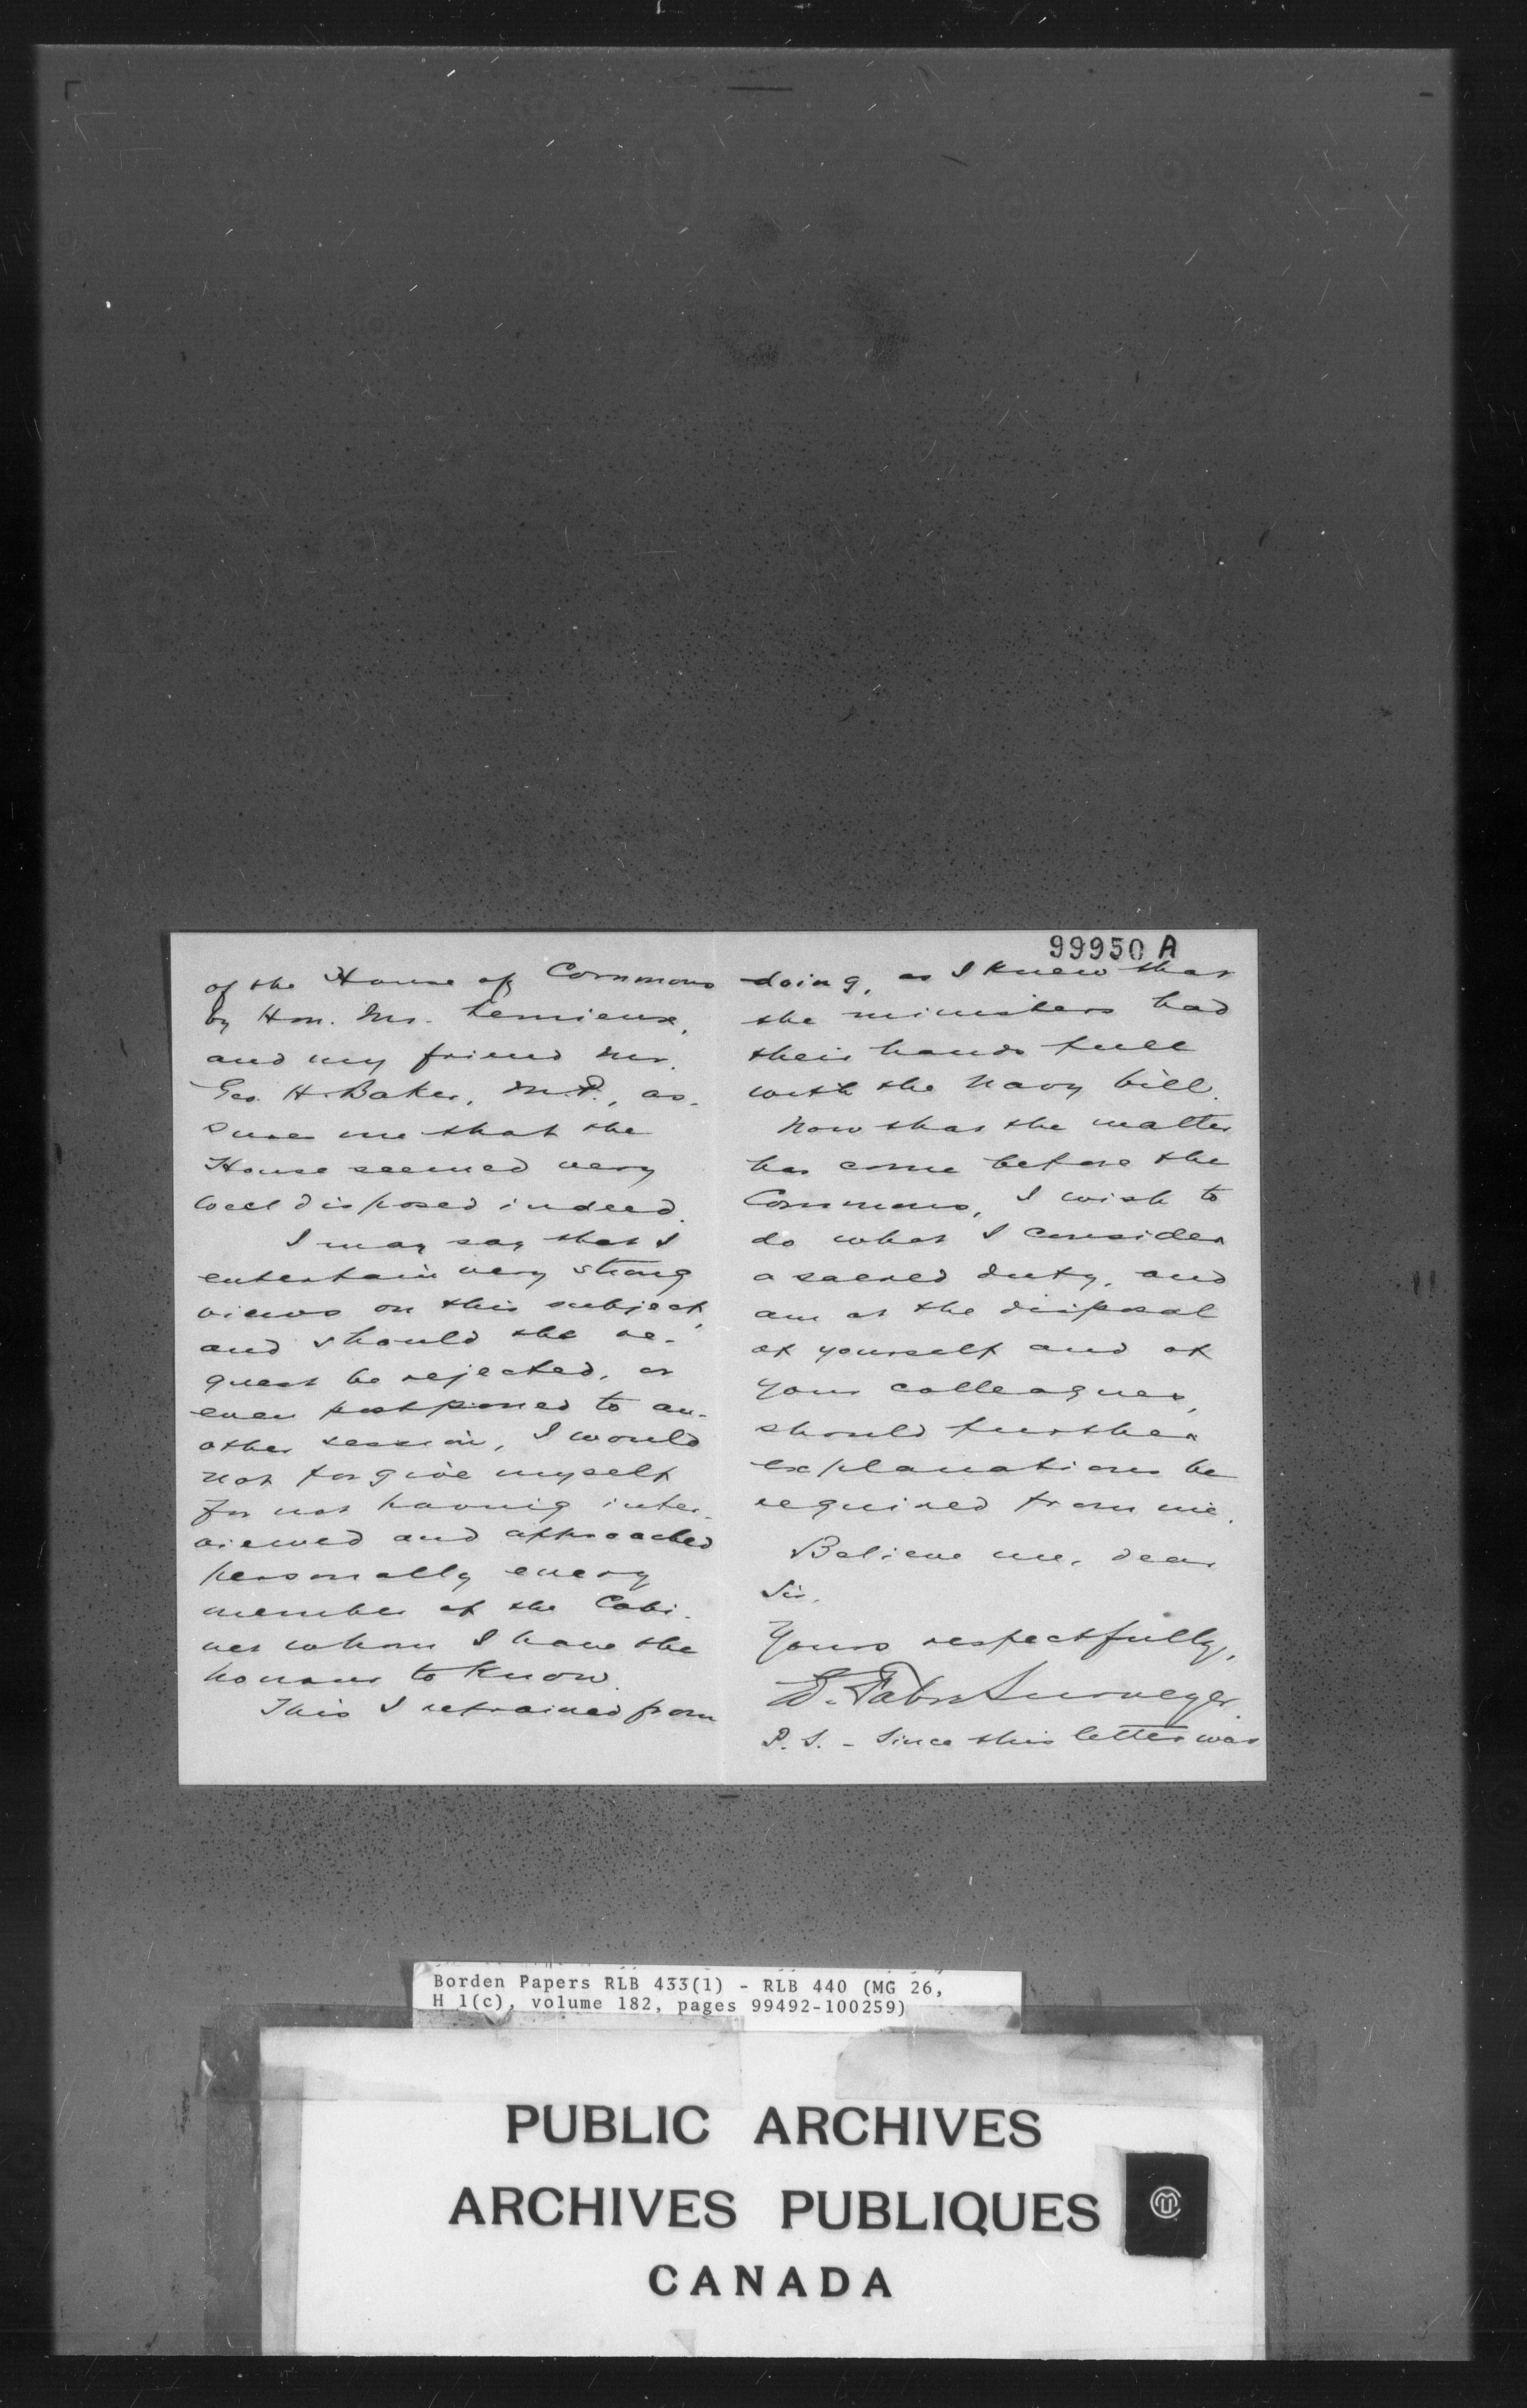 99950 A
of the House of Commons
by Hon. Mr. Lemieux,
and my friend Mr.
Geo. H. Baker, M.P., as-
sures me that the
House seemed very
well disposed indeed.
I may say that I
entertain very strong
views on this subject,
and should the re-
quest be rejected, or
even postponed to an-
other session, I would
not forgive myself
for not having inter-
viewed and approached
personally every
member of the Cabi-
net whom I have the
honour to know.
This I refrained from
doing, as I knew that
the ministers had
their hands full
with the Navy bill.
Now that the matter
has come before the
Commons, I wish to
do what I consider
a sacred duty, and
am at the disposal
of yourself and of
your colleagues,
should further
explanations be
required from me.
Believe me, dear
Sir,
Yours respectfully,
E. Fabre Surveyer
P.S. - Since this letter was
Borden Papers RLB 433(1) - RLB 440 (MG 26,
H 1(c), volume 182, pages 99492-100259)
PUBLIC ARCHIVES
ARCHIVES PUBLIQUES
CANADA